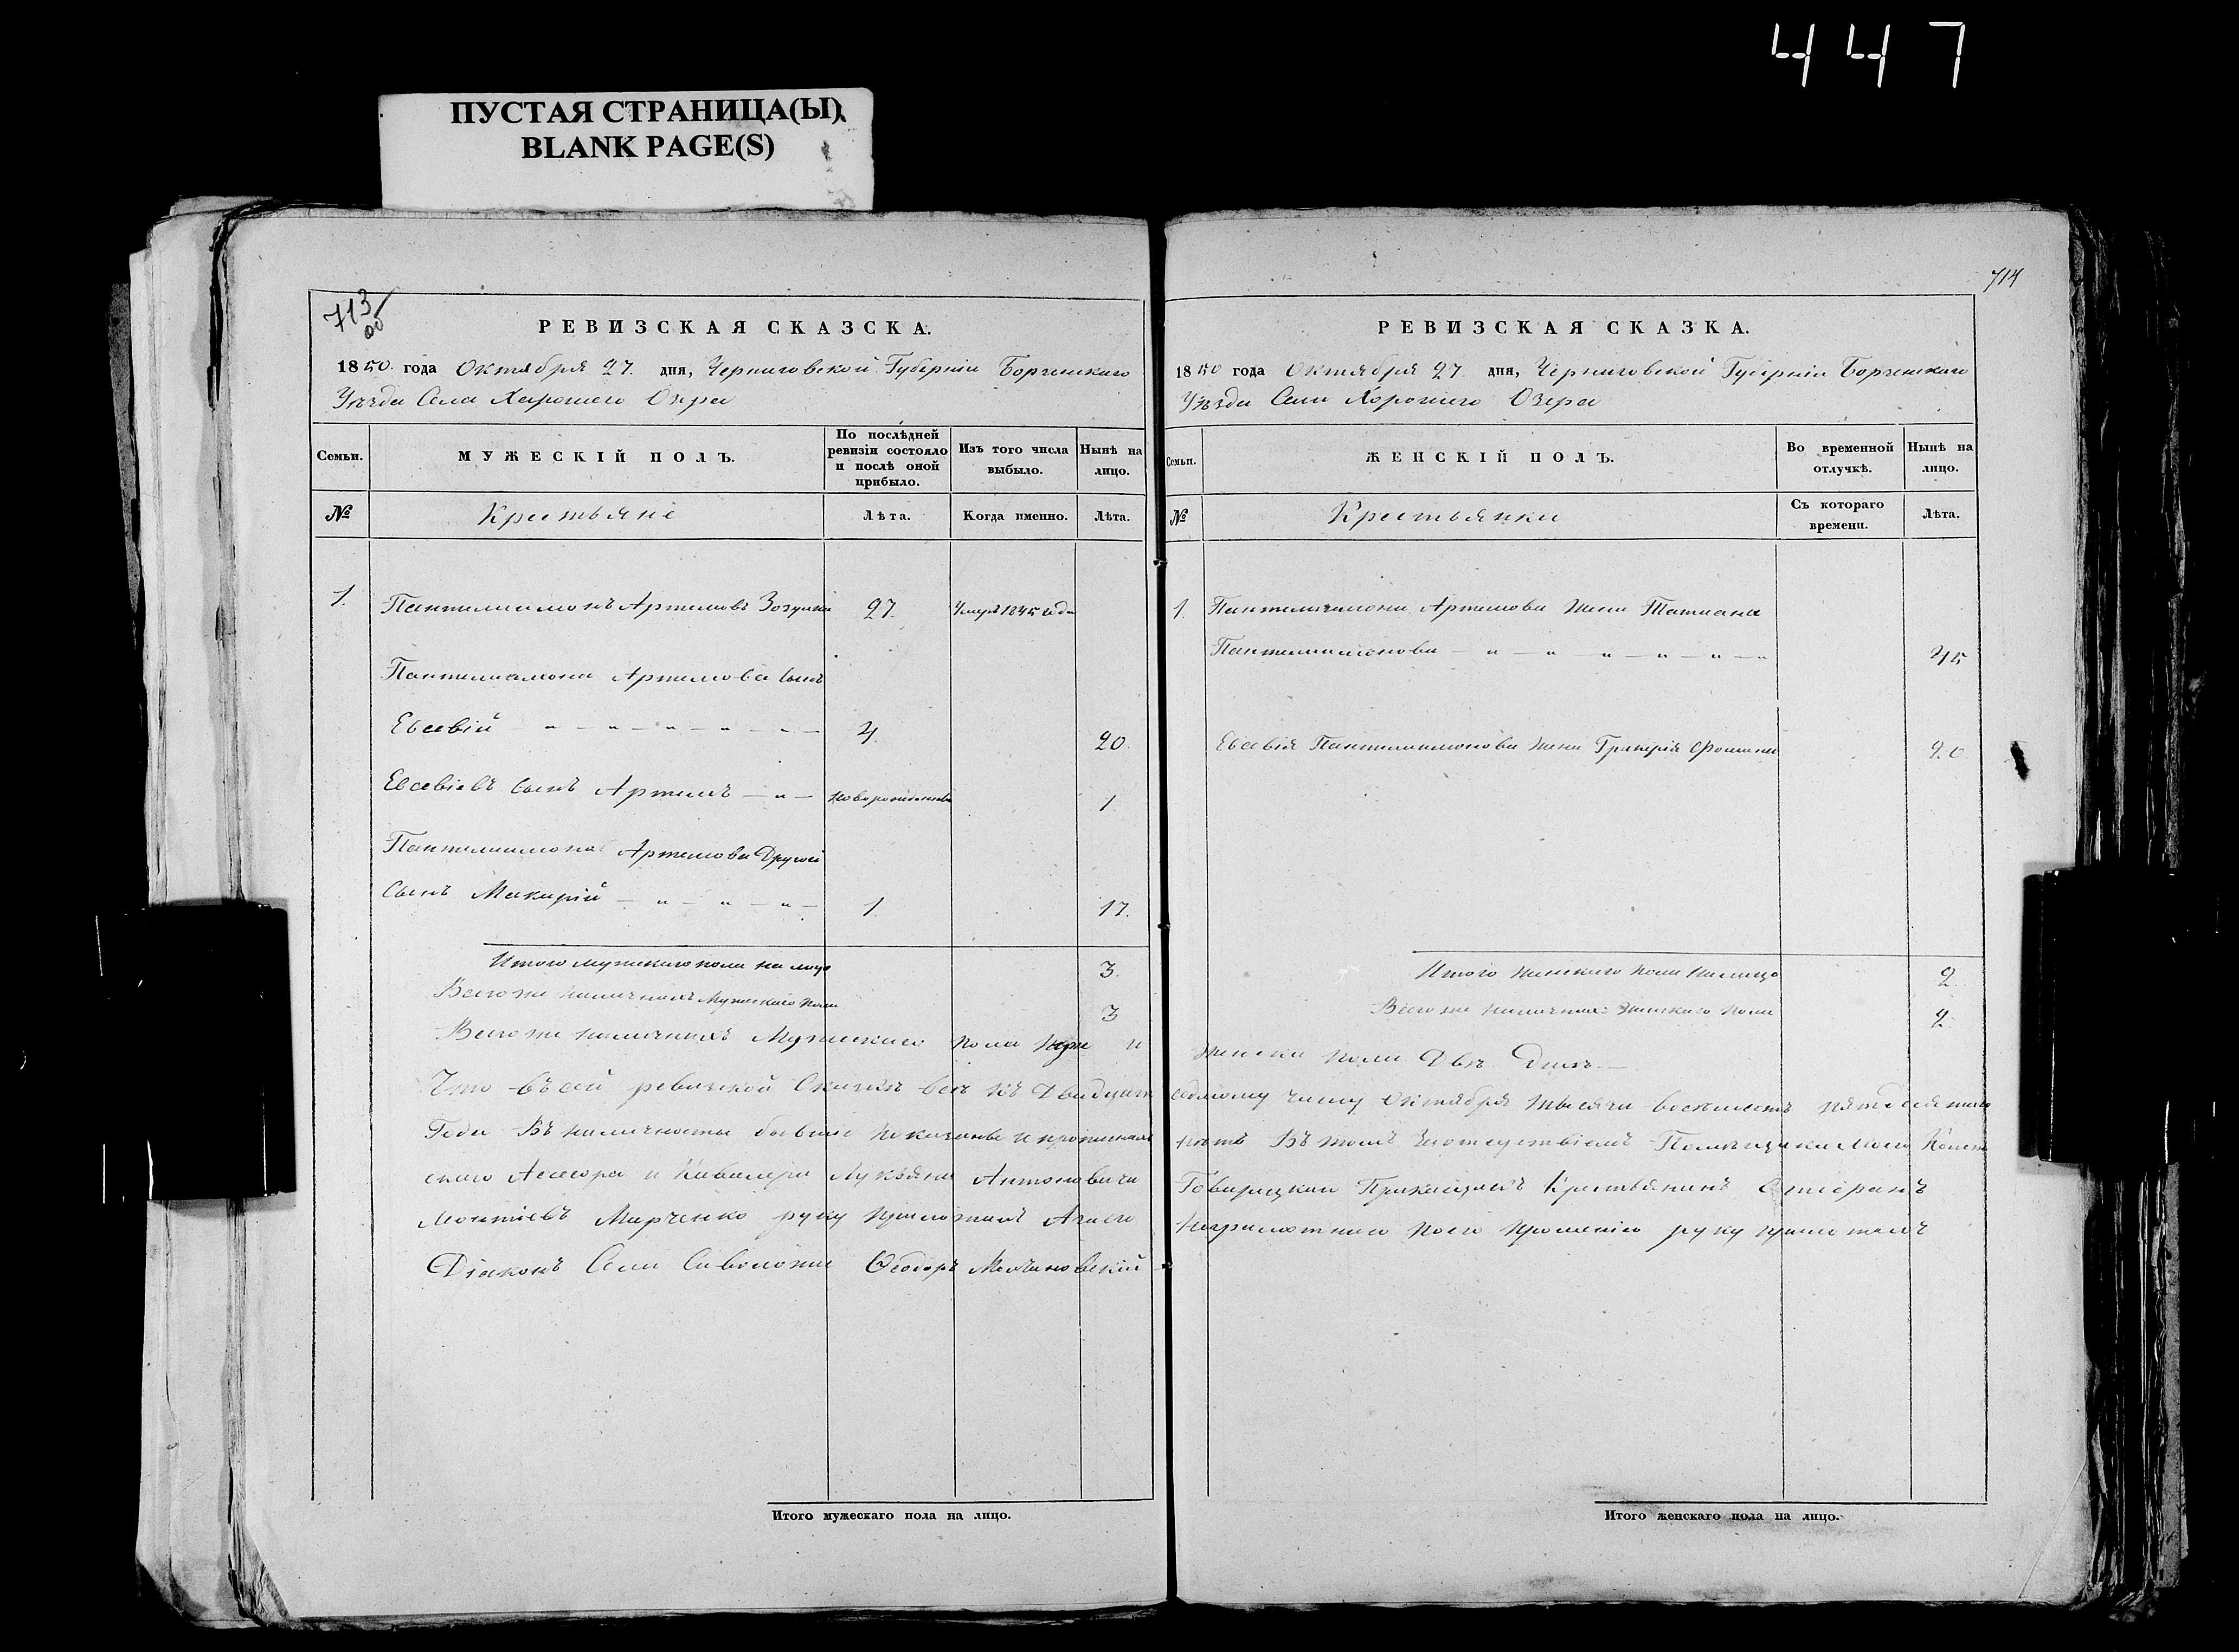 447
ПУСТАЯ СТРАНИЦА(Ы)
BLANK PAGE(S)
713 об
РЕВИЗСКАЯ СКАЗСКА.
1850 года Октября 27. дня, Черниговской Губерніи Борзенскаго
Уѣзда Села Хорошего Озера
Семьи.
МУЖЕСКІЙ ПОЛЪ.
По послѣдней ревизіи состояло и послѣ оной прибыло.
Изъ того числа выбыло.
Нынѣ на лицо.
№
Крестьяне
Лѣта.
Когда именно.
Лѣта.
1. Пантелиимонъ Артемовъ 27. Умеръ 1845 года
Пантелиимона Артемова сынъ
Евсевій 4. 20.
Евсевіевъ сынъ Артемъ новорожденный 1
Пантелиимона Артемова Другой
сынъ Макарій 1. 17.
Итого мужескаго пола на лицо 3.
Всего же наличныхъ мужескаго пола 3
Итого мужескаго пола на лицо.
714
РЕВИЗСКАЯ СКАЗКА.
1850 года Октября 27 дня, Черниговской Губерніи Борзенскаго
Уѣзда Села Хорошего Озера
Семьи.
ЖЕНСКІЙ ПОЛЪ.
Во временной отлучкѣ.
Нынѣ на лицо.
№
Крестьянки
Съ котораго времени.
Лѣта.
1. Пантелиимона Артемова жена Татиана
Пантелиимонова 45
Евсевія Пантелиимонова жена 20
Итого женскаго пола налицо 2.
Всего же наличныхъ женскаго пола 2
Всего же наличныхъ Мужескаго пола три и женска пола Двѣ Души
Что въ сей ревизской Сказкѣ всѣ къ Двадцать седмому числу Октября тысяча восемьсотъ пятьдесятого
Года въ наличности бывшіе показаны и пропущенныхъ нѣтъ въ томъ Помѣщика моего
Асессора и Кавалера Лукьяна Антоновича Прикащикъ Крестьянинъ
Марченко руку приложилъ А за его неграмотного по его прошенію руку приложилъ
Діаконъ Села Сиволожи Ѳеодоръ
Итого женскаго пола на лицо.